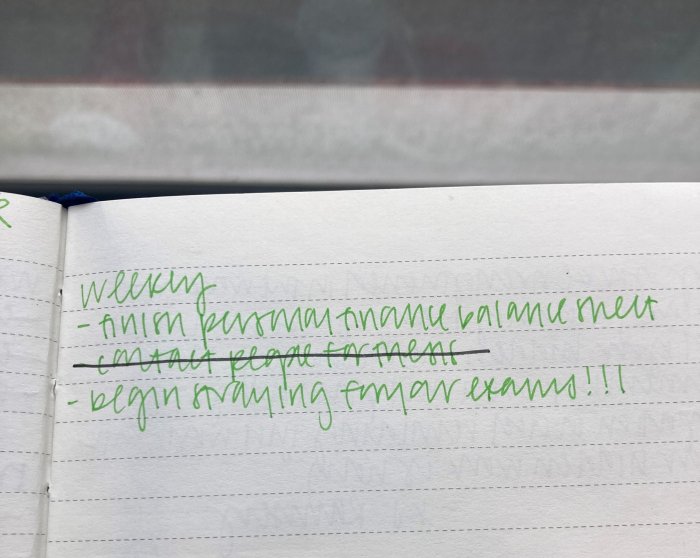 R
weekly
- finish personal finance balance sheet
- contact people for thesis
- begin studying for exams!!!